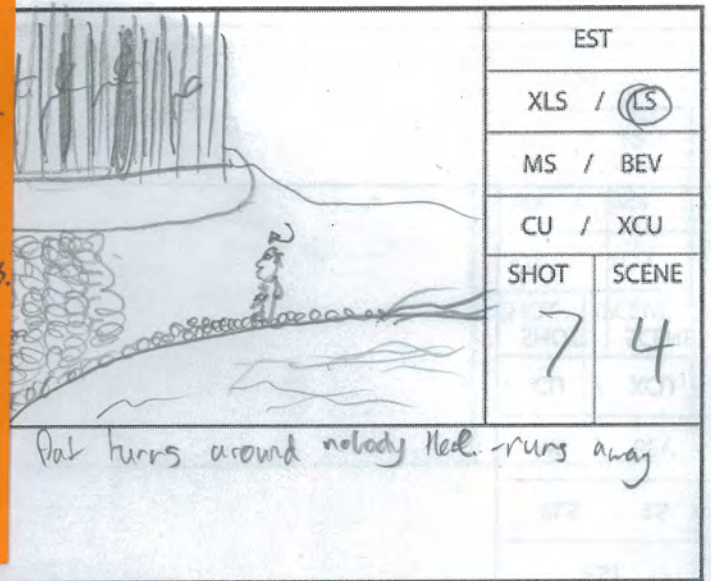 EST
XLS / LS
MS / BEV
CU / XCU
SHOT SCENE
7 4
turns around nobody - runs away